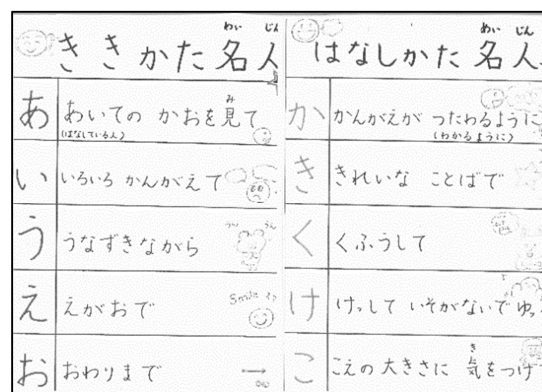 ききかた名人
めい じん
あ あいての かおを見て
み
(はなしている人)
い いろいろ かんがえて
う うなずきながら
うん うん
え えがおで
Smile
お おわりまで
はなしかた 名人
めい じん
か かんがえが つたわるように
(わかるように)
き きれいな ことばで
く くふうして
け けっして いそがないで ゆっ
こ こえの 大きさに 気をつけ
き